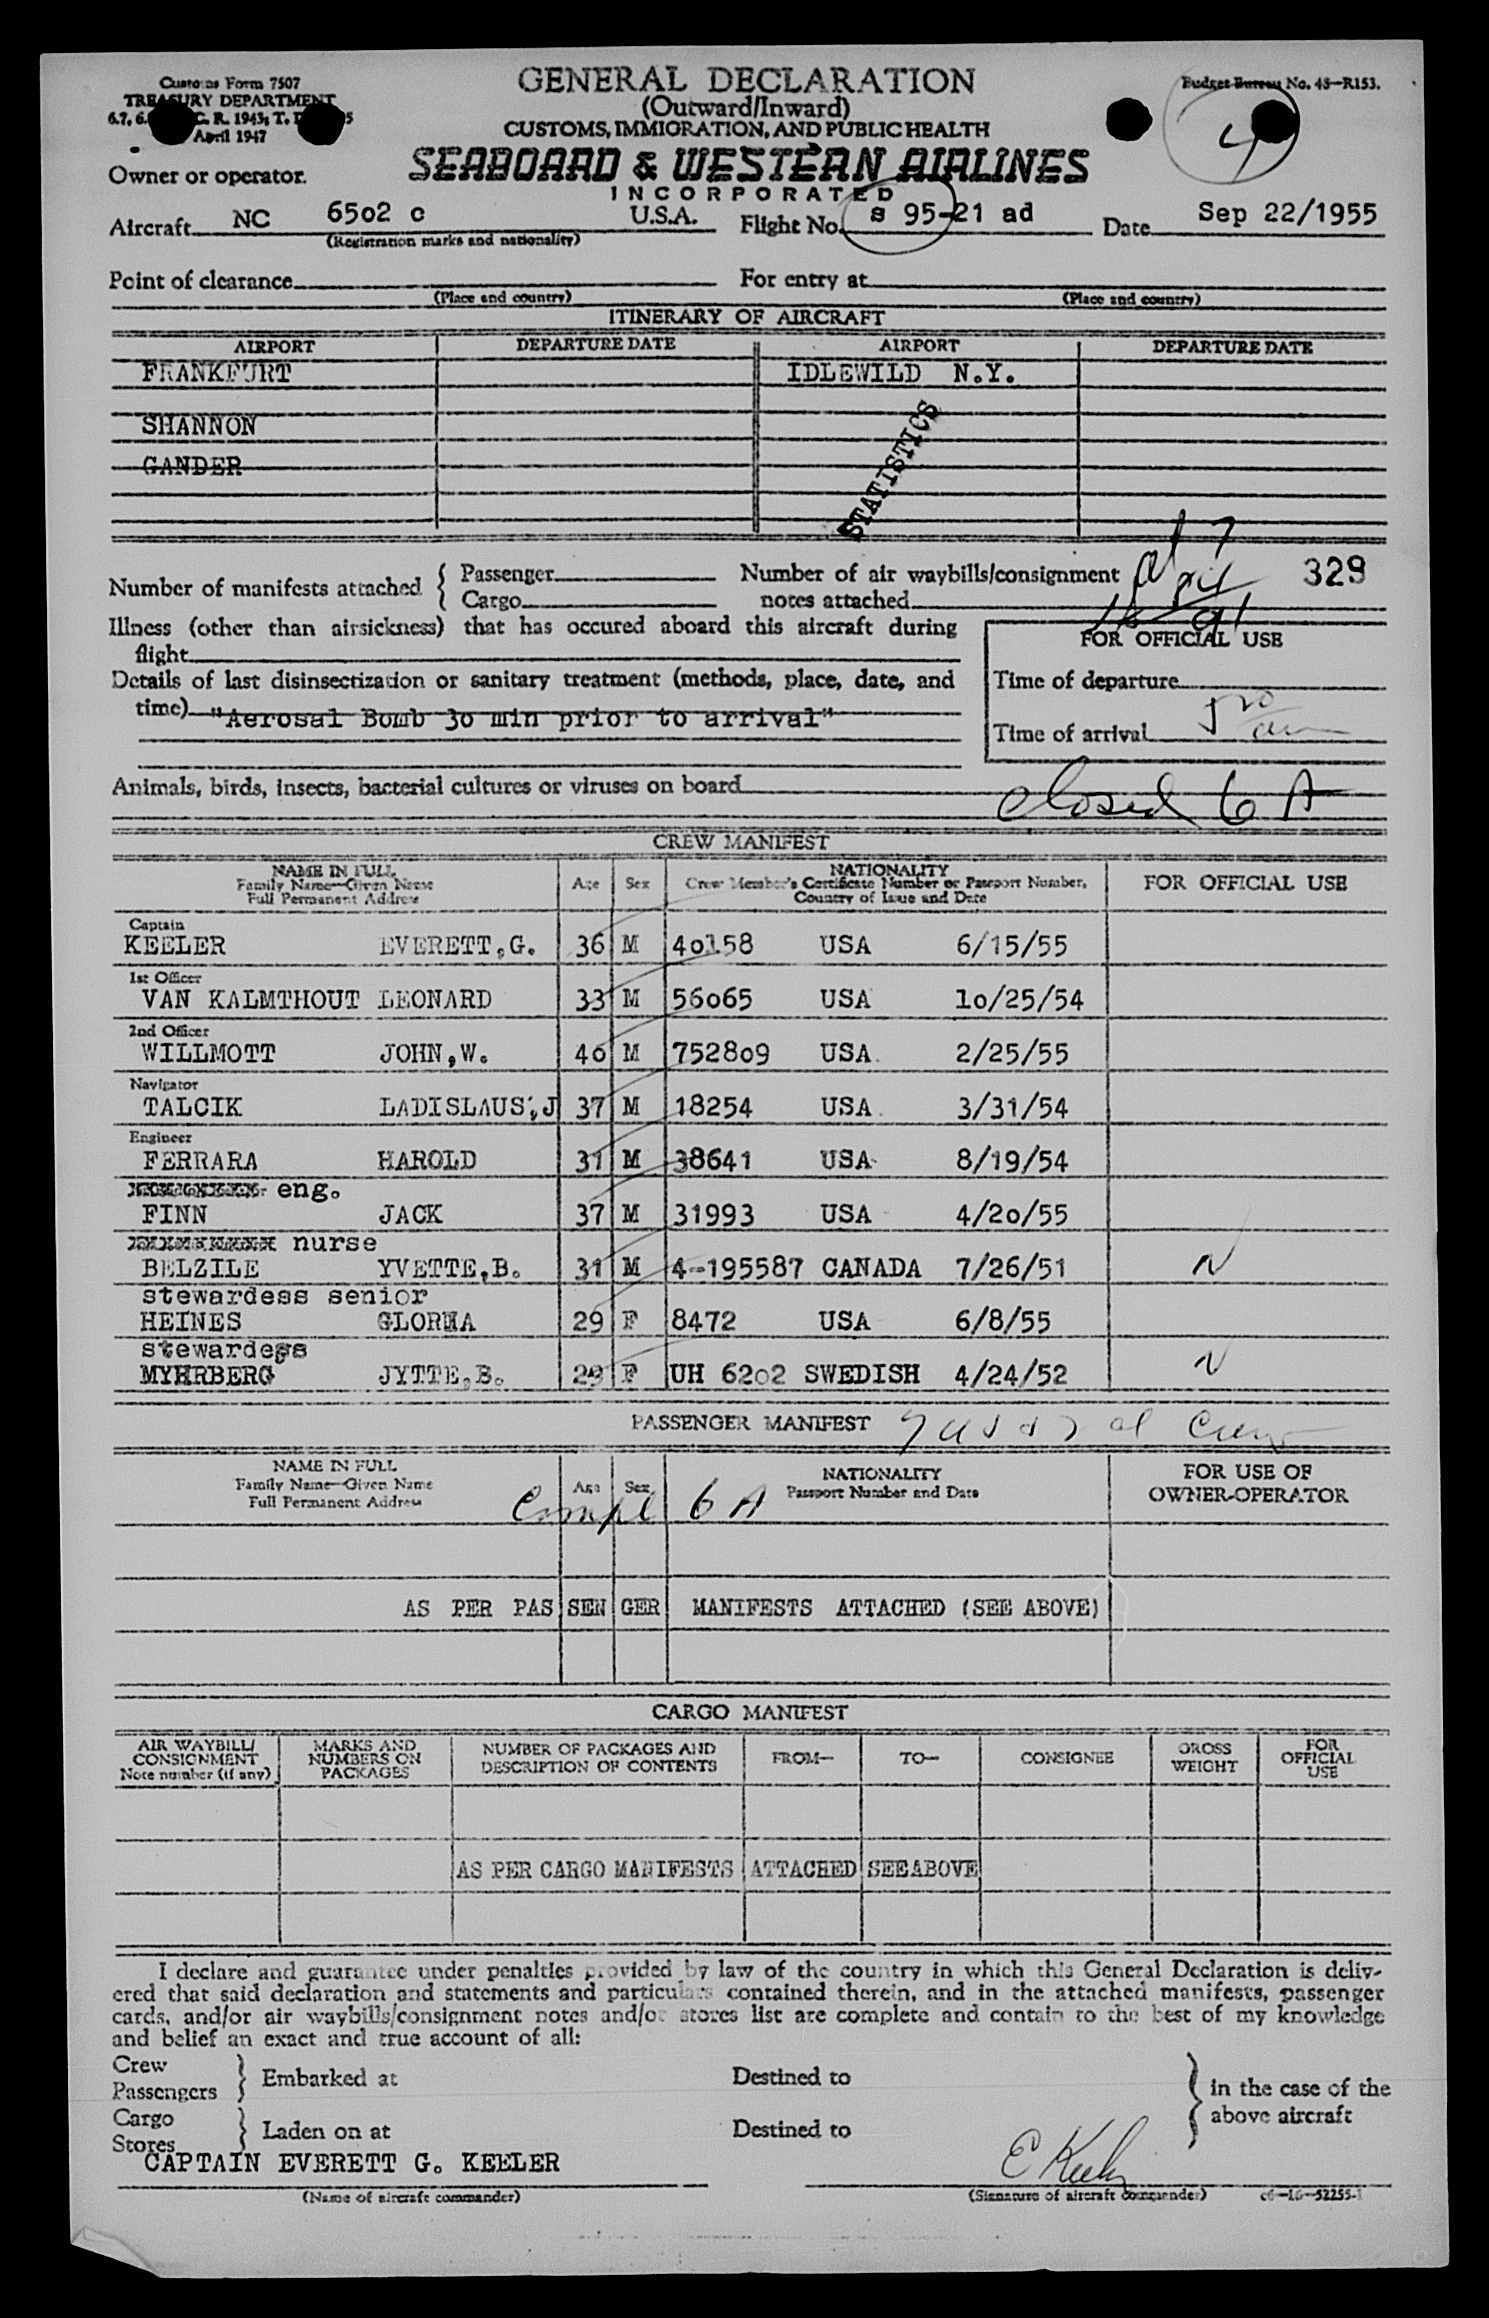 Customs Form 7507
TREASURY DEPARTMENT
April 1947
GENERAL DECLARATION
(Outward/Inward)
CUSTOMS, IMMIGRATION, AND PUBLIC HEALTH
Budget Bureau No. 48—R153.
4
SEABOARD & WESTERN AIRLINES
INCORPORATED
Owner or operator.
Aircraft NC 65o2 c U.S.A. Flight No. s 95-21 ad Date Sep 22/1955
(Registration marks and nationality)
Point of clearance For entry at
(Place and country) (Place and country)
ITINERARY OF AIRCRAFT
AIRPORT DEPARTURE DATE AIRPORT DEPARTURE DATE
FRANKFURT IDLEWILD N.Y.
SHANNON
GANDER
STATISTICS
Number of manifests attached { Passenger Number of air waybills/consignment 329
Cargo notes attached
Illness (other than airsickness) that has occured aboard this aircraft during
flight
FOR OFFICIAL USE
Details of last disinsectization or sanitary treatment (methods, place, date, and
time) "Aerosal Bomb 3o min prior to arrival"
Time of departure
Time of arrival
Animals, birds, insects, bacterial cultures or viruses on board
closed 6 A
CREW MANIFEST
NAME IN FULL
Family Name—Given Name
Full Permanent Address
Age Sex
NATIONALITY
Crew Member's Certificate Number or Passport Number,
Country of Issue and Date
FOR OFFICIAL USE
Captain
KEELER EVERETT,G. 36 M 4o158 USA 6/15/55
1st Officer
VAN KALMTHOUT LEONARD 33 M 56o65 USA 1o/25/54
2nd Officer
WILLMOTT JOHN,W. 4o M 7528o9 USA 2/25/55
Navigator
TALCIK LADISLAUS,J 37 M 18254 USA 3/31/54
Engineer
FERRARA HAROLD 31 M 38641 USA 8/19/54
eng.
FINN JACK 37 M 31993 USA 4/2o/55
nurse
BELZILE YVETTE,B. 31 M 4-195587 CANADA 7/26/51 N
stewardess senior
HEINES GLORIA 29 F 8472 USA 6/8/55
stewardess
MYHRBERG JYTTE,B. 29 F UH 62o2 SWEDISH 4/24/52 N
PASSENGER MANIFEST
NAME IN FULL
Family Name—Given Name
Full Permanent Address
Age Sex
NATIONALITY
Passport Number and Date
FOR USE OF
OWNER-OPERATOR
Compl 6 A
AS PER PAS SEN GER MANIFESTS ATTACHED (SEE ABOVE)
CARGO MANIFEST
AIR WAYBILL/
CONSIGNMENT
Note number (if any)
MARKS AND
NUMBERS ON
PACKAGES
NUMBER OF PACKAGES AND
DESCRIPTION OF CONTENTS
FROM—
TO—
CONSIGNEE
GROSS
WEIGHT
FOR
OFFICIAL
USE
AS PER CARGO MANIFESTS ATTACHED SEE ABOVE
I declare and guarantee under penalties provided by law of the country in which this General Declaration is deliv-
ered that said declaration and statements and particulars contained therein, and in the attached manifests, passenger
cards, and/or air waybills/consignment notes and/or stores list are complete and contain to the best of my knowledge
and belief an exact and true account of all:
Crew
Passengers } Embarked at Destined to
Cargo
Stores } Laden on at Destined to
} in the case of the
above aircraft
CAPTAIN EVERETT G. KEELER E Keeler
(Name of aircraft commander) (Signature of aircraft commander)